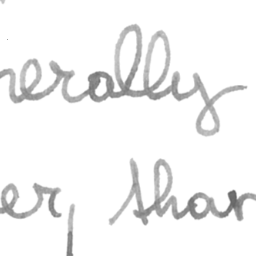 nerally
er, than